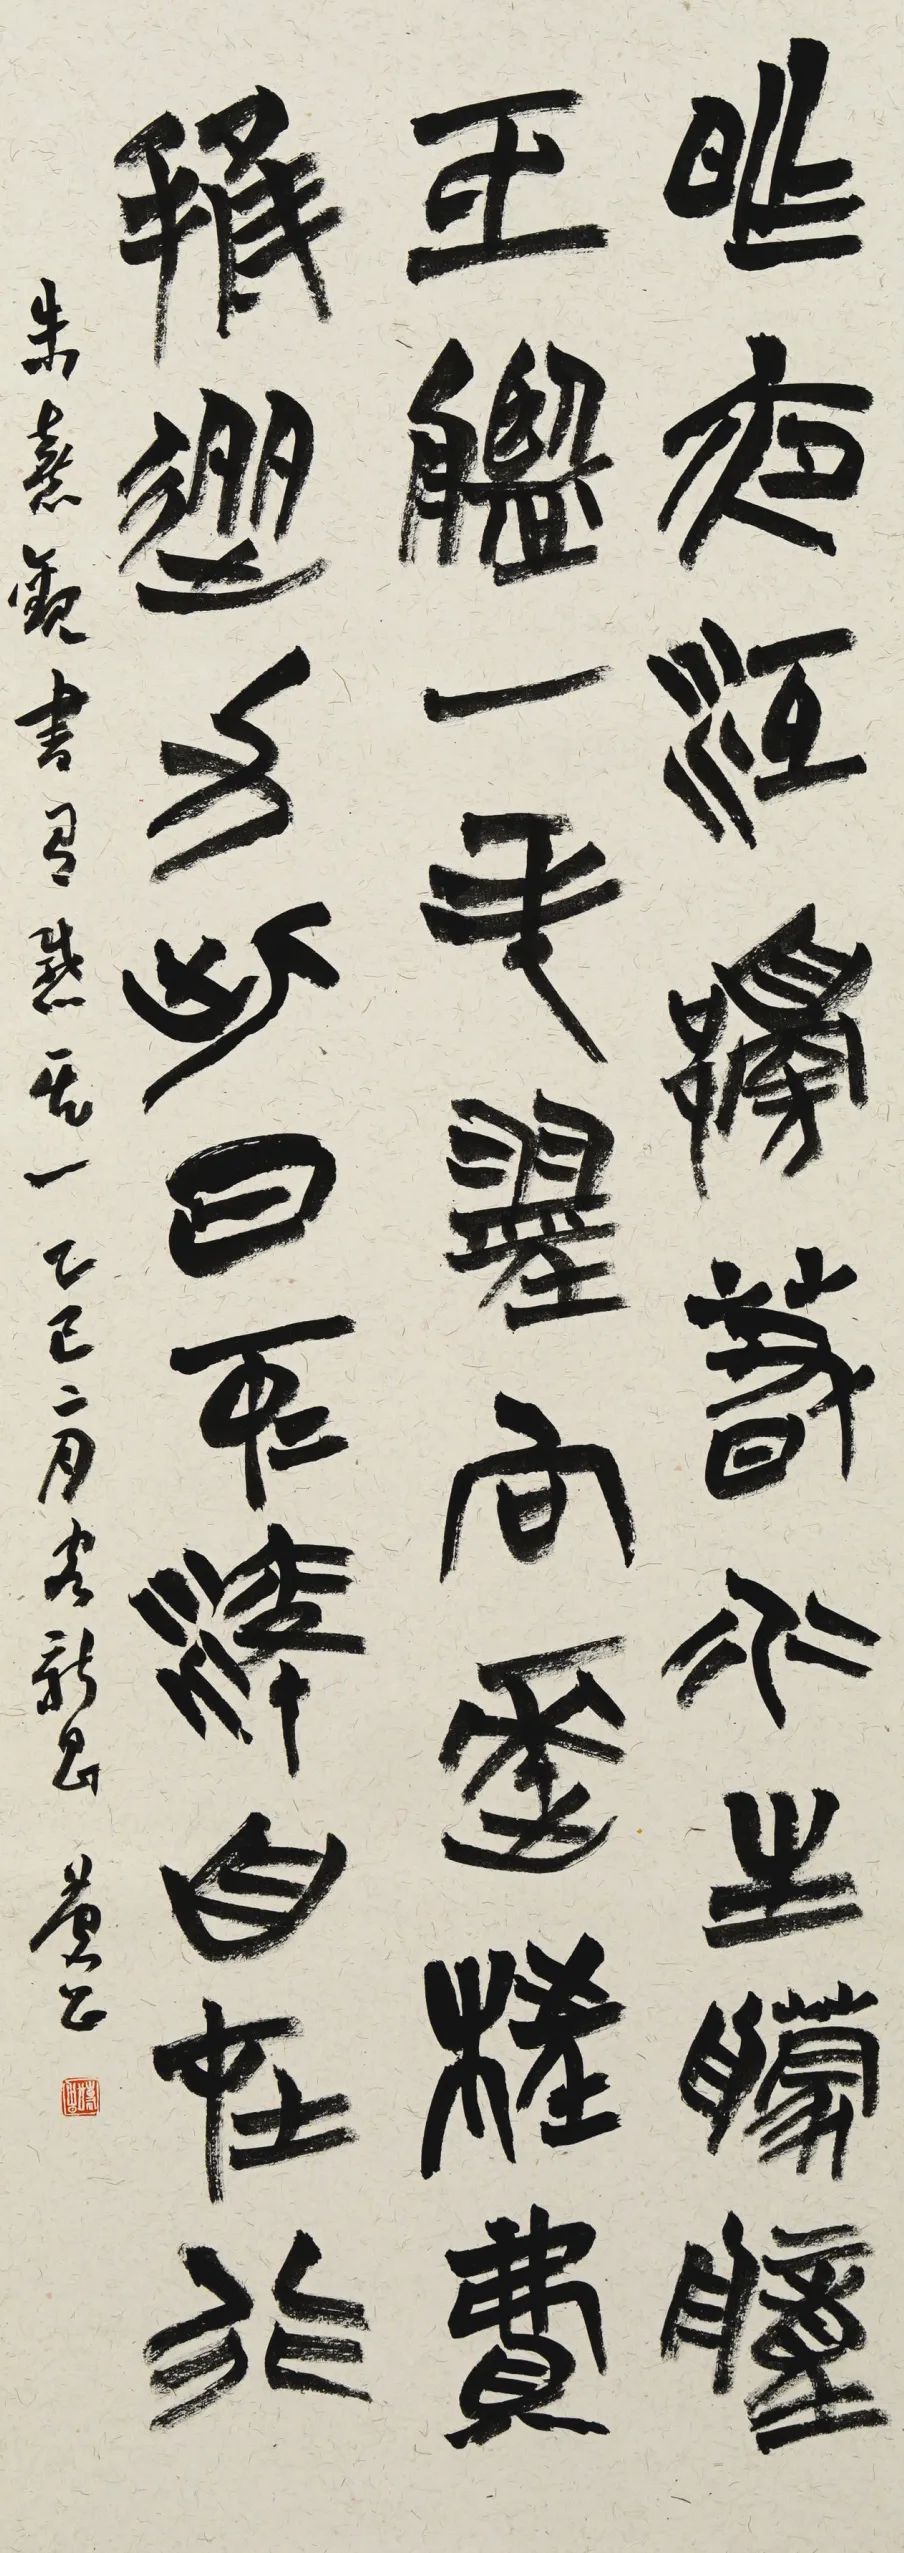 昨夜江邊春水生艨艟
巨艦一毛輕向來枉費
推移力此日中流自在行
朱熹觀書有感其一 乙巳二月 新昌 黄